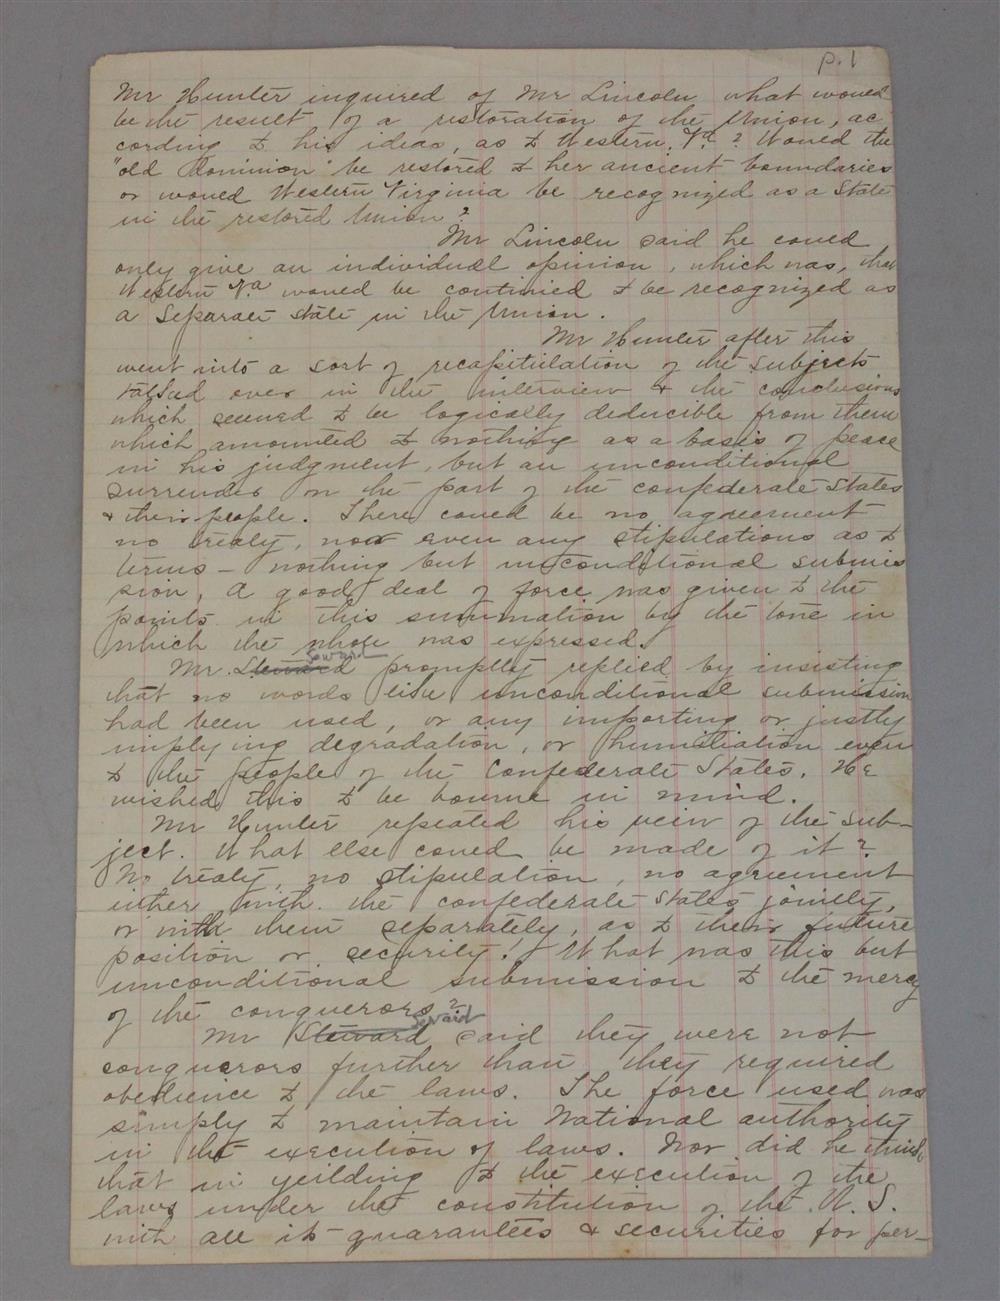 p. 1
Mr Hunter inquired of Mr Lincoln what would
be the result of a restoration of the Union, ac
cording to his ideas, as to Western Va? Would the
"old Dominion" be restored to her ancient boundaries
or would Western Virginia be recognized as a State
in the restored Union?
Mr Lincoln said he could
only give an individual opinion, which was, that
Western Va would be continued to be recognized as
a Separate State in the Union.
Mr Hunter after this
went into a sort of recapitulation of the subjects
talked over in the interview & the conclusions
which seemed to be logically deducible from them
which amounted to nothing as a basis of peace
in his judgment, but an unconditional
surrender on the part of the confederate States
& their people. There could be no agreement
no treaty, nor even any stipulations as to
terms – nothing but unconditional submis
sion, A good deal of force was given to the
points in this summation by the tone in
which the whole was expressed.
Mr. Steward Seward promptly replied by insisting
that no words like unconditional submission
had been used, or any importing or justly
implying degradation, or humiliation even
to the people of the Confederate States. He
wished this to be bourne in mind.
Mr Hunter repeated his view of the sub-
ject. What else could be made of it?
No treaty, no stipulation, no agreement
either with the confederate States jointly,
or with them separately, as to their future
position or security! What was this but
unconditional submission to the mercy
of the conquerors?
Mr Steward Seward said they were not
conquerors further than they required
obedience to the laws. The force used was
simply to maintain National authority
in the execution of laws. Nor did he think
that in yeilding to the execution of the
laws under the constitution of the U. S.
with all its guarantees & securities for per-